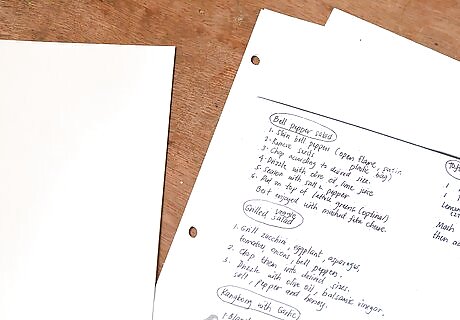 Bell pepper salad
1. Skin bell peppers (open flame, put in
plastic bag)
2. Remove seeds
3. Chop according to desired size.
4. Drizzle with olive oil, lime juice
5. Season with salt & pepper
6. Put on top of lettuce greens (optional)
Best enjoyed with method feta cheese.
Grilled veggie
salad
1. Grill zucchini, eggplant, asparagus,
tomatoes, onions, bell peppers.
2. Chop them into desired sizes.
3. Drizzle with olive oil, balsamic vinegar,
salt, pepper and honey.
Kangkong with Garlic
1. Blanch